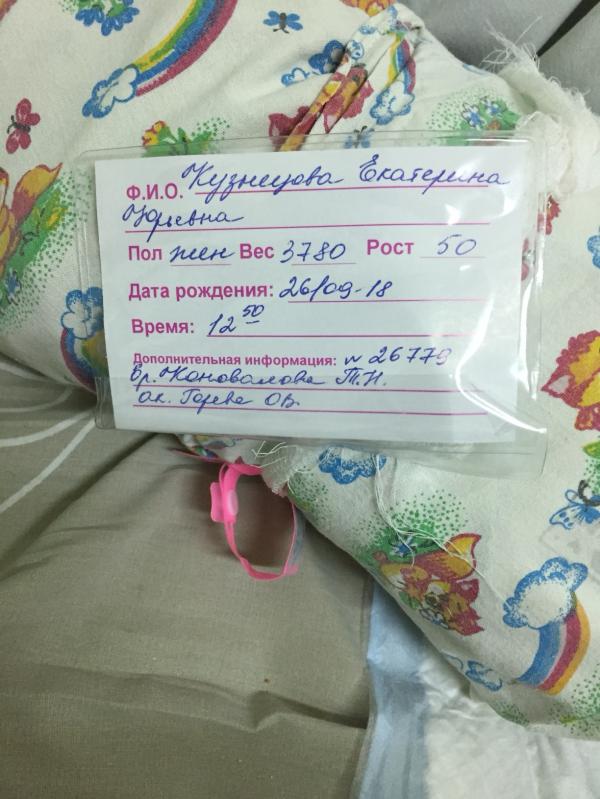 Ф.И.О. Кузнецова Екатерина
Юрьевна
Пол жен Вес 3780 Рост 50
Дата рождения: 26/09-18
Время: 12 50
Дополнительная информация: № 26779
Вр. Коновалова Т.Н.
ак. Горева О.В.